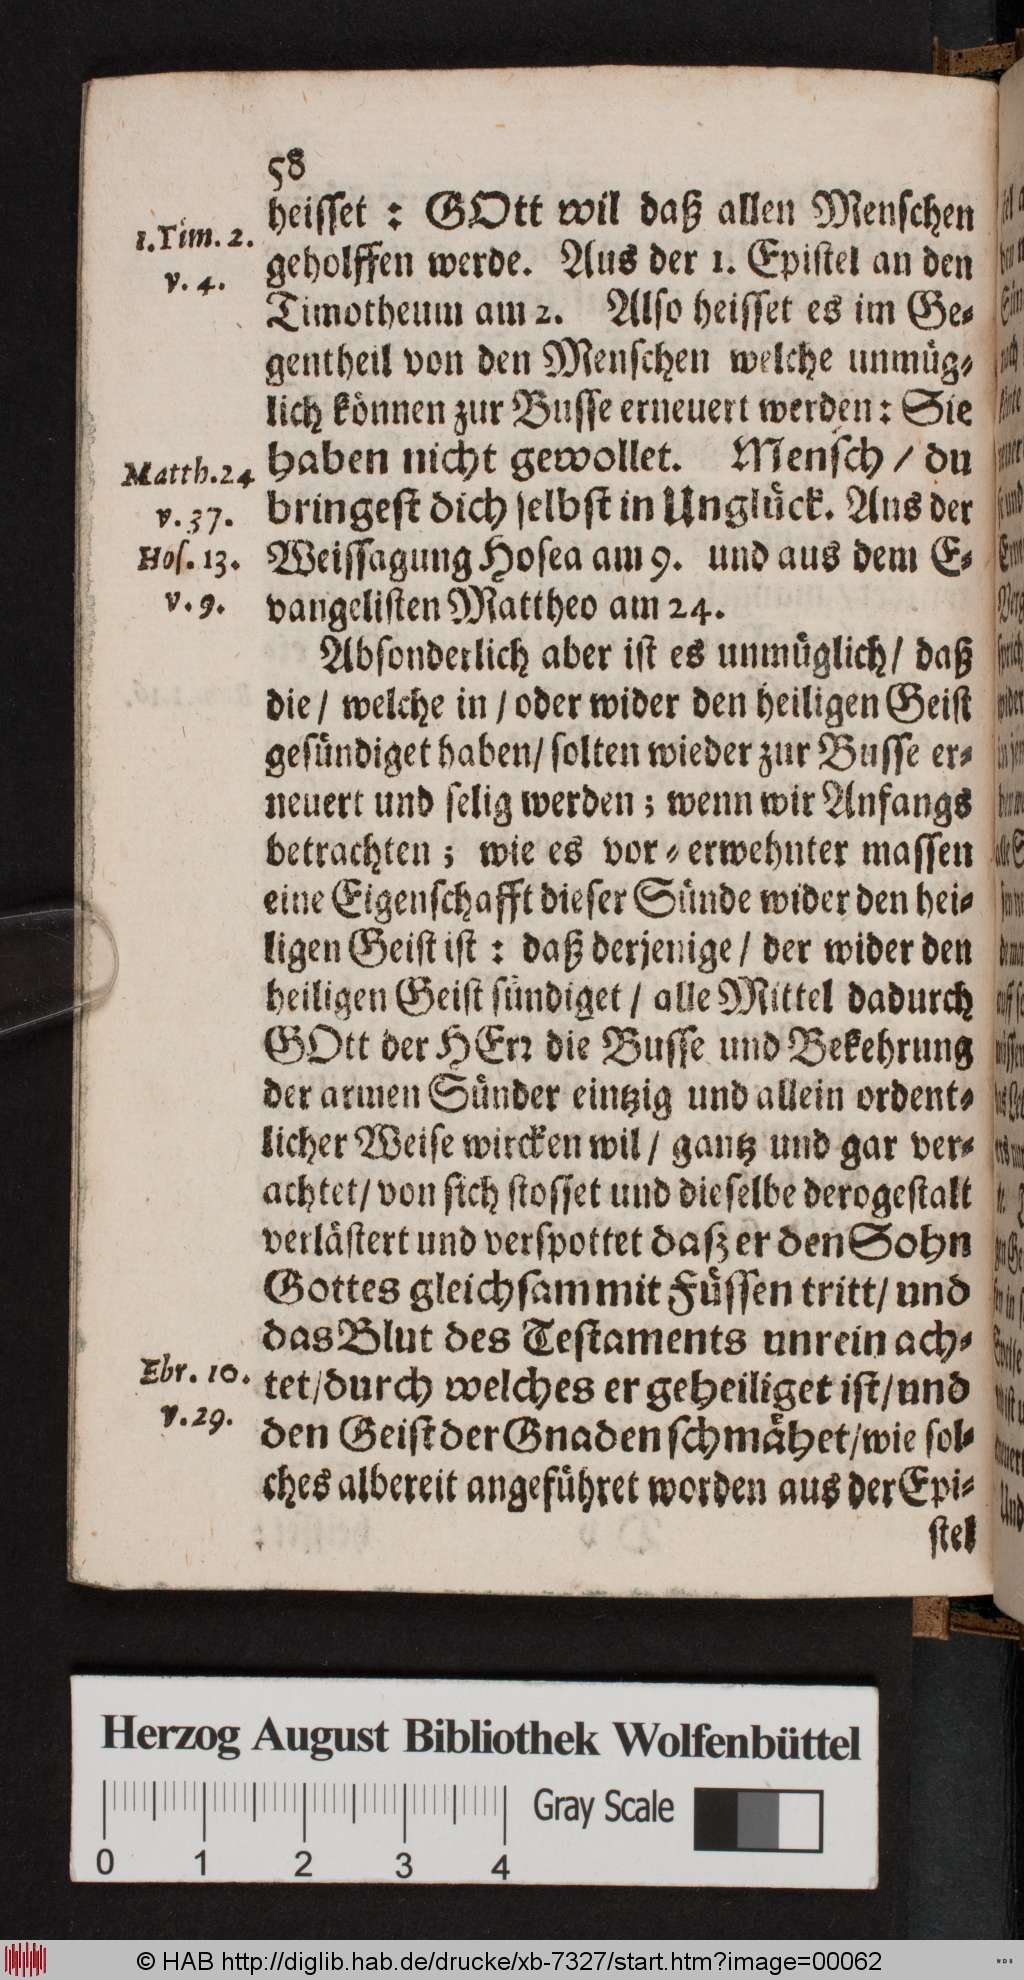 58
heisset : GOtt wil daß allen Menschen
1.Tim. 2.
geholffen werde. Aus der 1. Epistel an den
v. 4.
Timotheum am 2. Also heisset es im Ge-
gentheil von den Menschen welche unmüg-
lich können zur Busse erneuert werden: Sie
haben nicht gewollet. Mensch / du
Matth.24
bringest dich selbst in Unglück. Aus der
v.37.
Weissagung Hosea am 9. und aus dem E-
Hos. 13.
vangelisten Mattheo am 24.
v.9.
Absonderlich aber ist es unmüglich/ daß
die/ welche in / oder wider den heiligen Geist
gesündiget haben/ solten wieder zur Busse er-
neuert und selig werden ; wenn wir Anfangs
betrachten ; wie es vor-erwehnter massen
eine Eigenschafft dieser Sünde wider den hei-
ligen Geist ist : daß derjenige/ der wider den
heiligen Geist sündiget / alle Mittel dadurch
GOtt der HErr die Busse und Bekehrung
der armen Sünder eintzig und allein ordent-
licher Weise wircken wil / gantz und gar ver-
achtet/ von sich stosset und dieselbe derogestalt
verlästert und verspottet daß er den Sohn
Gottes gleichsam mit Füssen tritt/ und
das Blut des Testaments unrein ach-
Ebr. 10.
tet/durch welches er geheiliget ist/und
v.29.
den Geist der Gnaden schmähet/wie sol-
ches albereit angeführet worden aus der Epi-
stel
Herzog August Bibliothek Wolfenbüttel
Gray Scale
0 1 2 3 4
© HAB http://diglib.hab.de/drucke/xb-7327/start.htm?image=00062